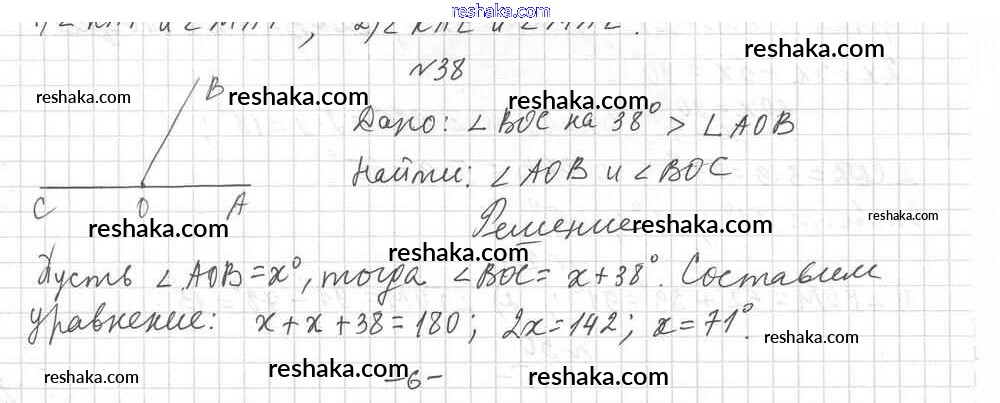 reshaka.com
1) ∠ KПГ и ∠ МПГ; 2) ∠ KПL и ∠ МПL.
№38
reshaka.com
B
reshaka.com reshaka.com reshaka.com
Дано: ∠ BOC на 38° > ∠ AOB
Найти: ∠ AOB и ∠ BOC
C O A
reshaka.com Решение reshaka.com reshaka.com
reshaka.com
Пусть ∠ AOB = x°, тогда ∠ BOC = x + 38°. Составим
уравнение: x + x + 38 = 180; 2x = 142; x = 71°.
reshaka.com reshaka.com
reshaka.com -6- reshaka.com